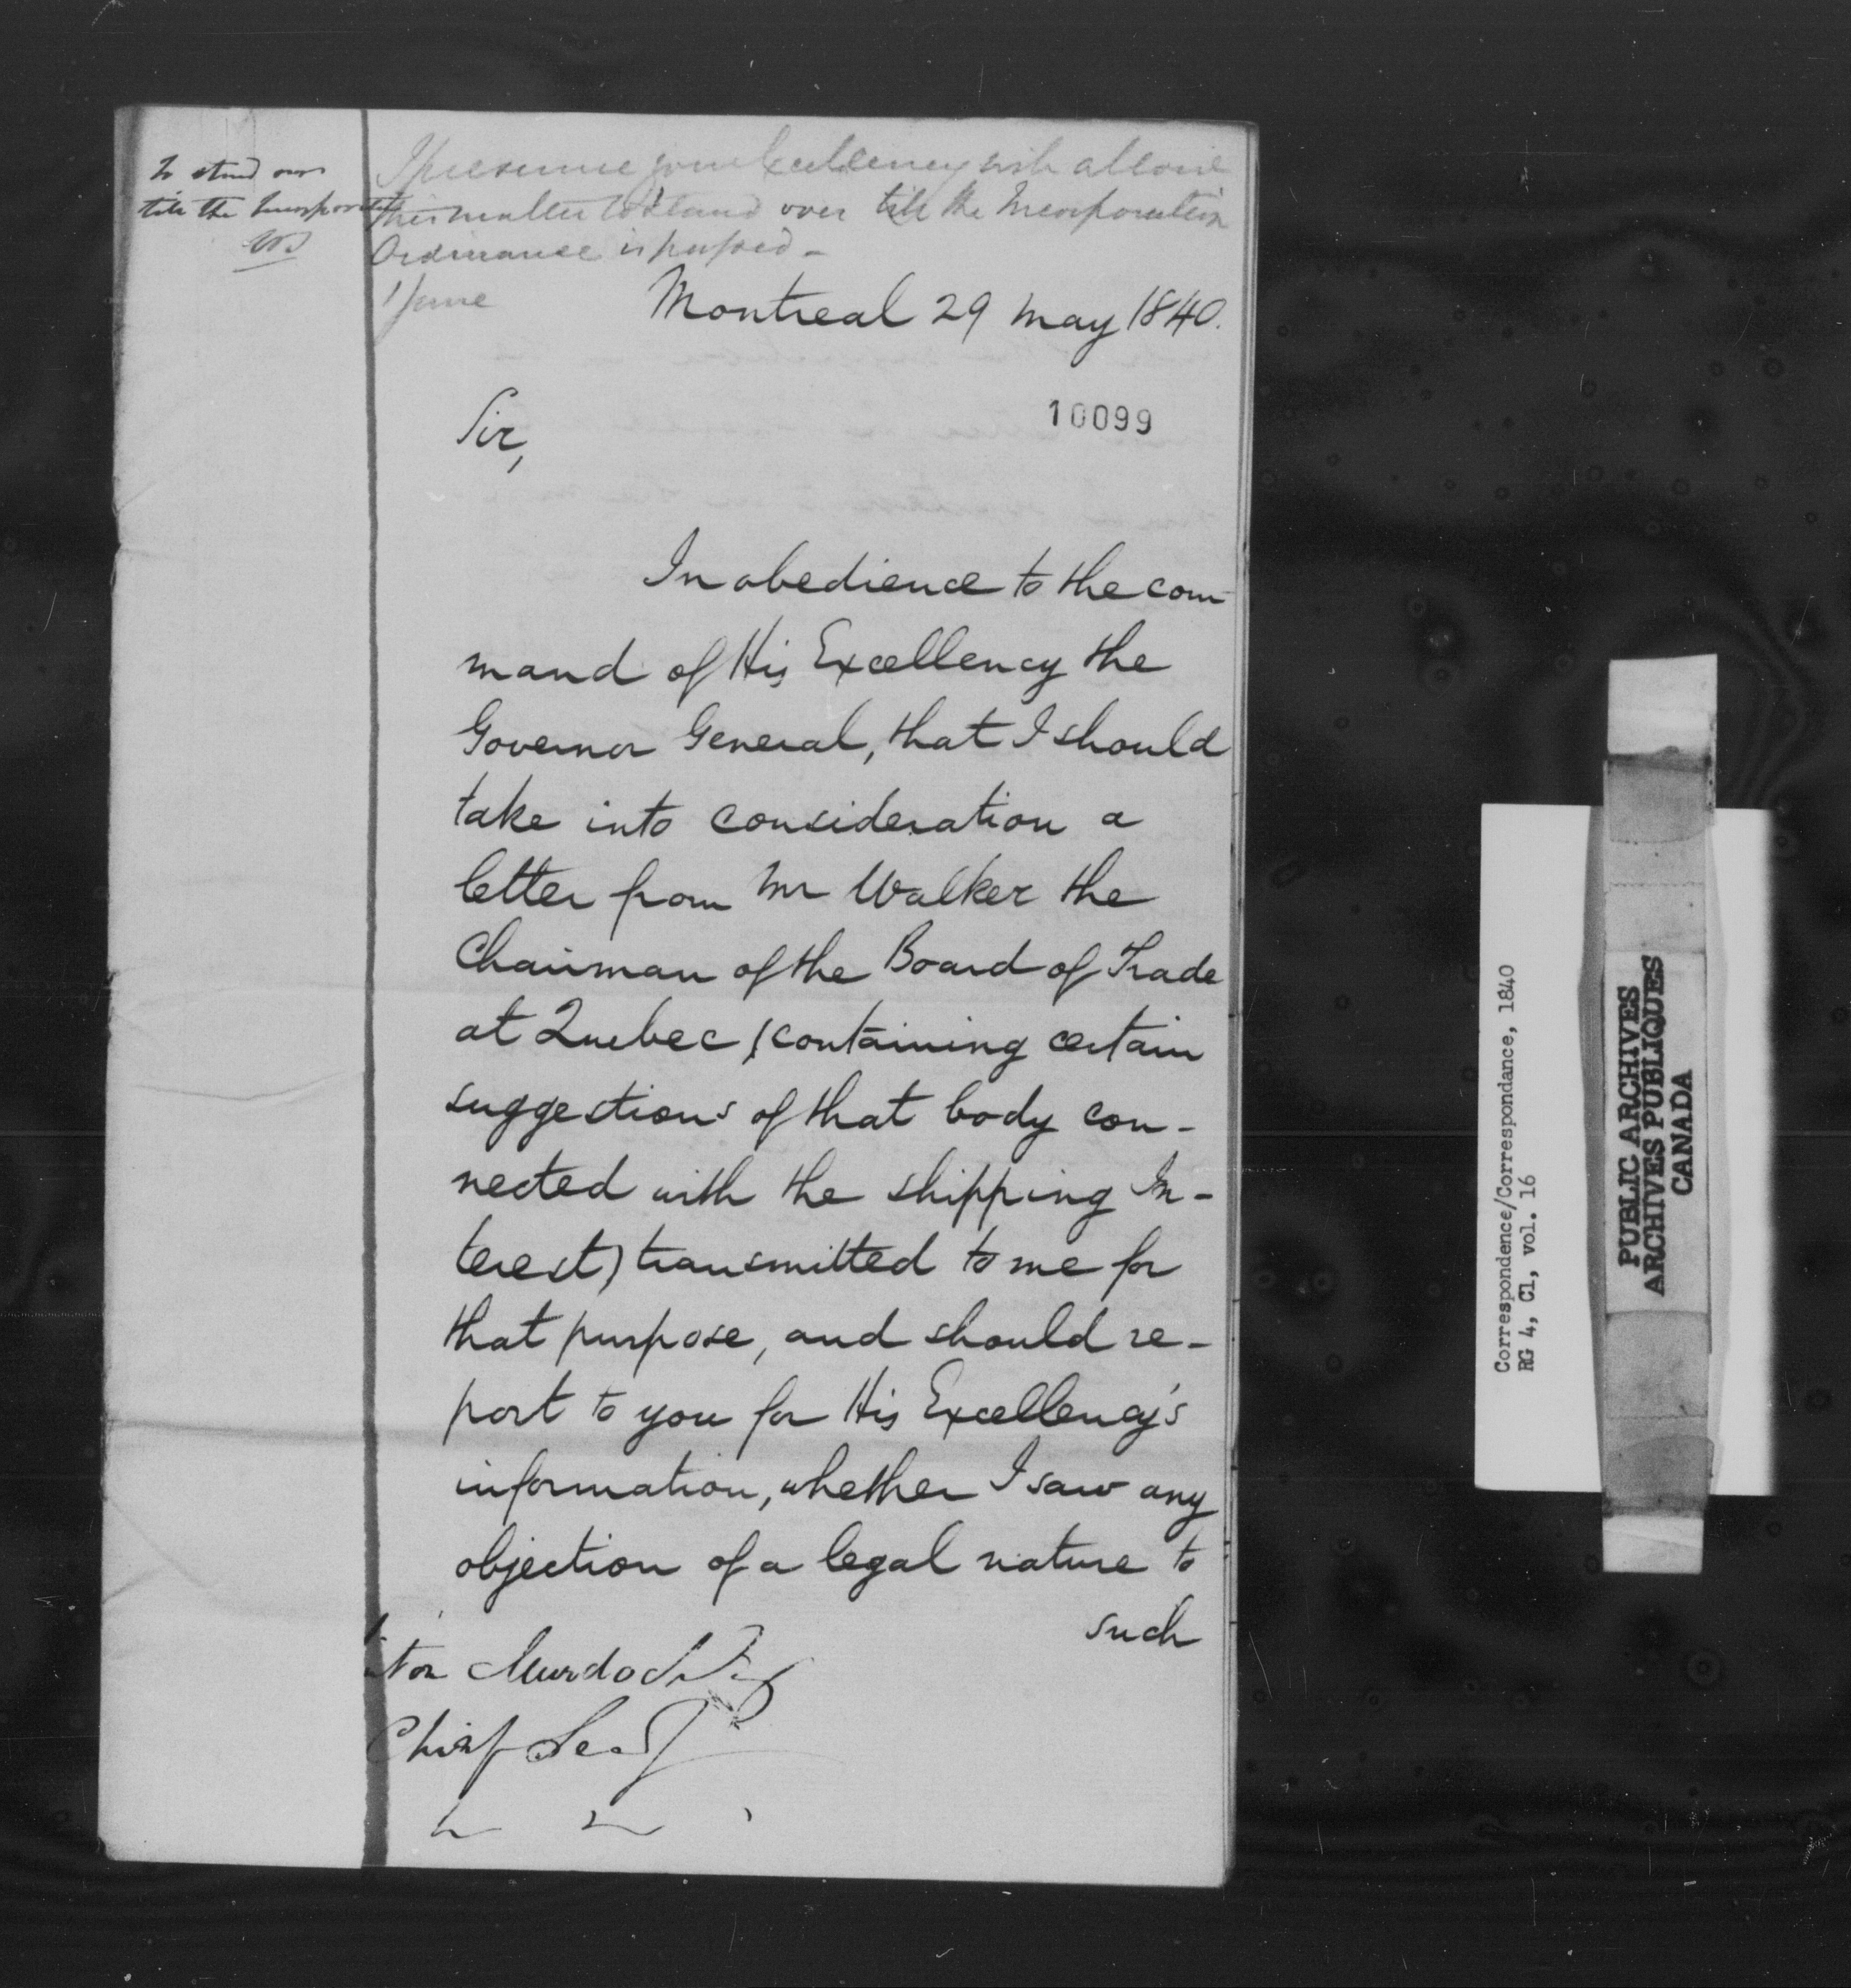 To stand over
till the Incorporation
I presume your Excellency will allow
this matter to stand over till the Incorporation
Ordinance is passed -
1 June
Montreal 29 May 1840.
10099
Sir,
In obedience to the com-
mand of His Excellency the
Governor General, that I should
take into consideration a
letter from Mr Walker the
Chairman of the Board of Trade
at Quebec (containing certain
suggestions of that body con-
nected with the shipping In-
terest) transmitted to me for
that purpose, and should re-
port to you for His Excellency's
information, whether I saw any
objection of a legal nature to
such
Murdoch
Chief Secy
Correspondence/Correspondance, 1840
RG 4, C1, vol. 16
PUBLIC ARCHIVES
ARCHIVES PUBLIQUES
CANADA